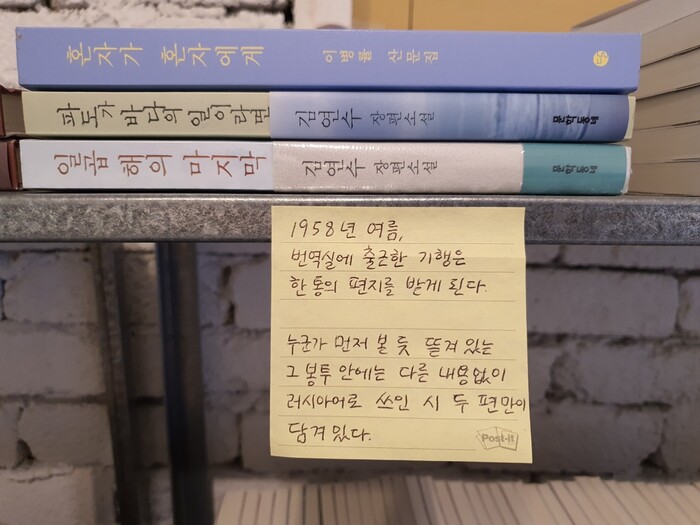 혼자가 혼자에게 이병률 산문집 달
파도가 바다의 일이라면 김연수 장편소설 문학동네
일곱 해의 마지막 김연수 장편소설 문학동네
1958년 여름,
번역실에 출근한 기행은
한 통의 편지를 받게 된다.
누군가 먼저 볼 듯 뜯겨 있는
그 봉투 안에는 다른 내용없이
러시아어로 쓰인 시 두 편만이
담겨 있다.
Post-it